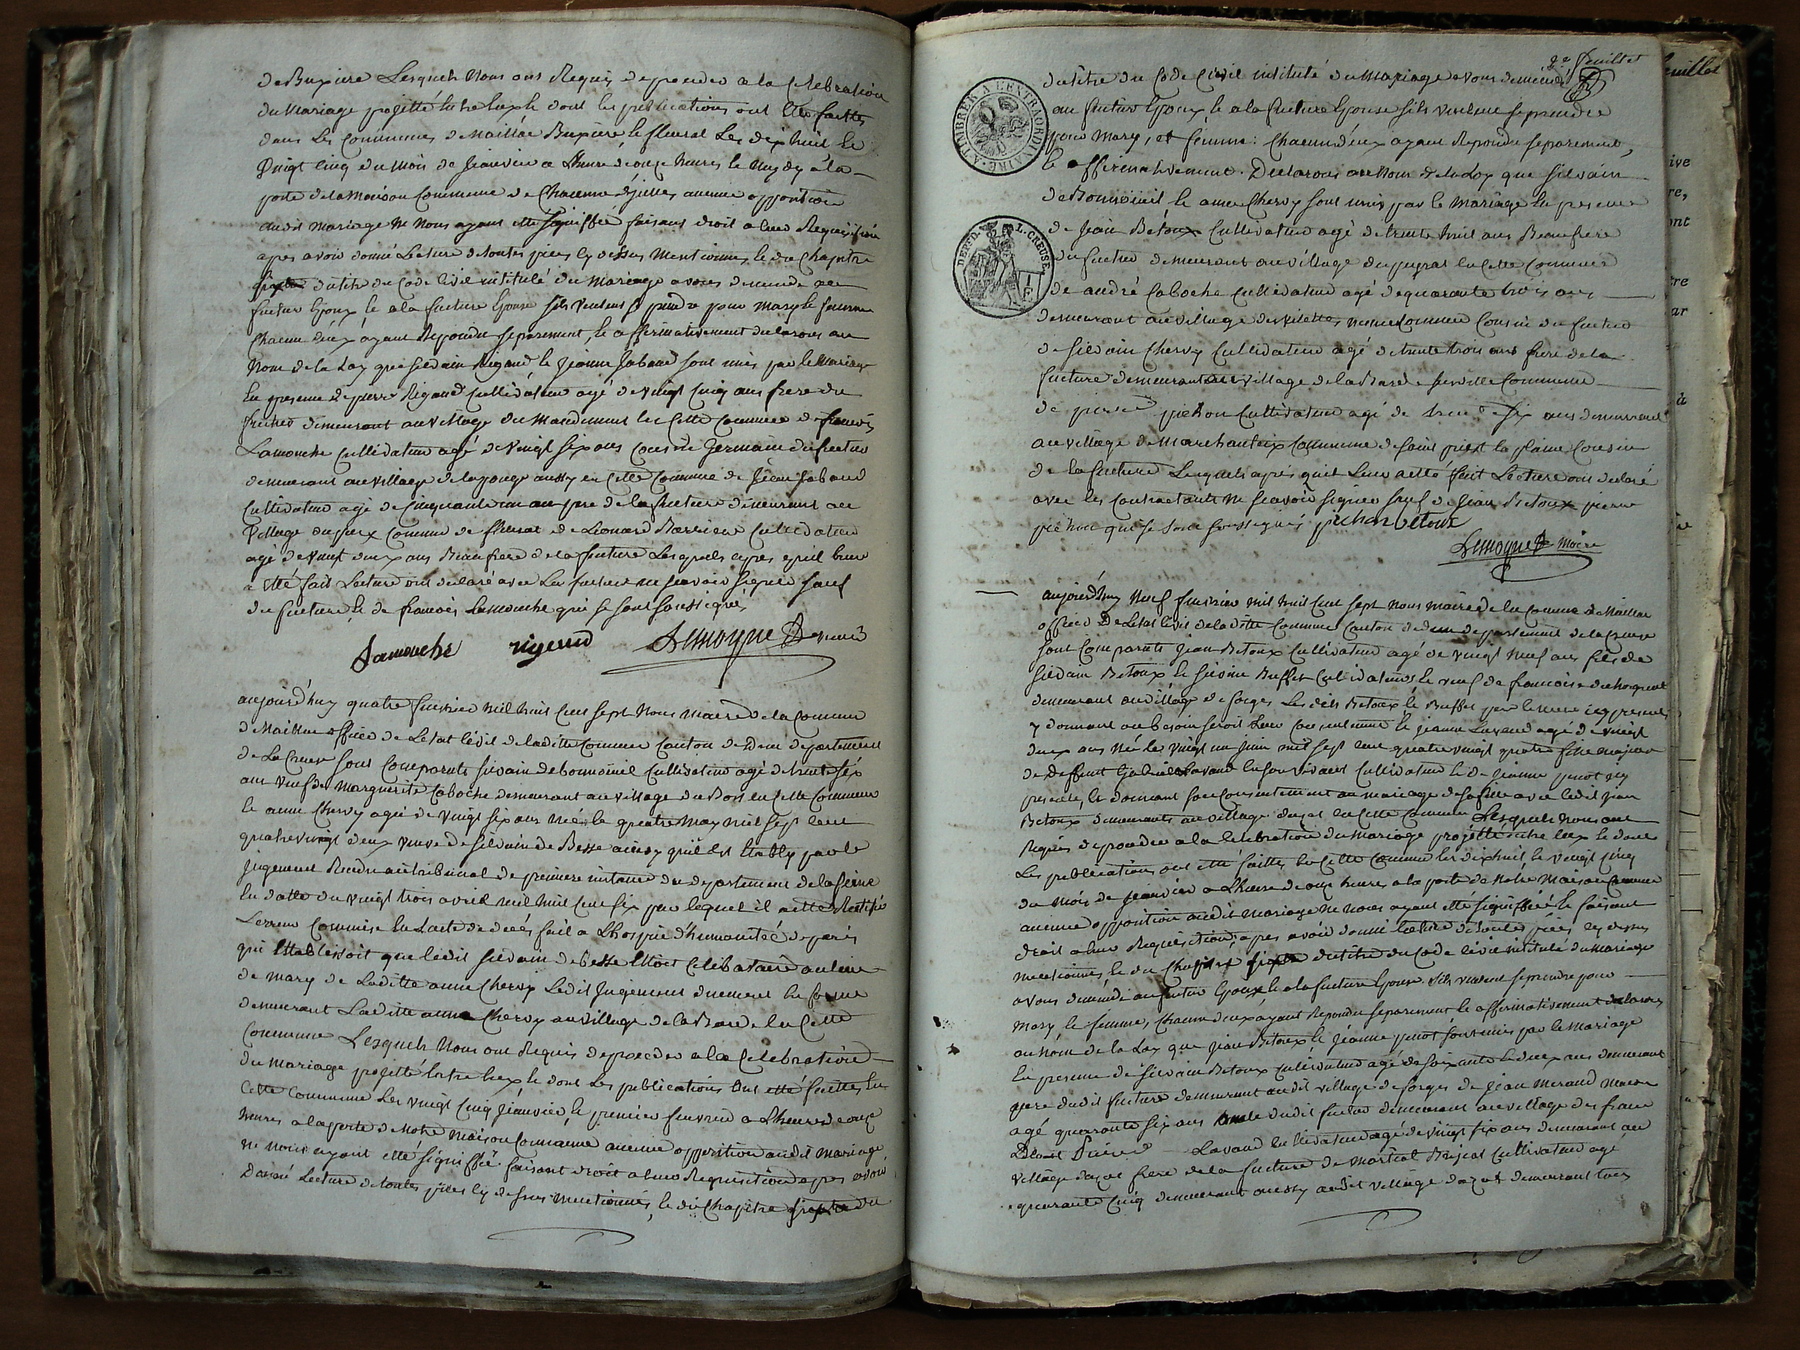 de Buxiere Lesquels nous ont Requis de proceder a la Celebration
du Mariage projetté Entre Eux et dont les publications ont Eté faittes
dans les Communes de Maillac Buxiere le fleurat Les dix huit et
Vingt cinq du mois de Janvier a L'heure de onze heures le
porte de la Maison Commune de Chacune d'icelles aucune opposition
audit mariage Ne Nous ayant etté Signiffiée faisant droit a leur Requisition
apres avoir donné Lecture de toutes pieces cy dessus Mentionnées et du Chapitre
du titre du Code Civil intitulé du Mariage avons demandé au
futur Epoux et a la future Epouse s'ils veulent prendre pour Mary et femme
Chacun d'eux ayant Repondu Separement et affirmativement declarons au
Nom de la Loy que silvain Rigaud et Jeanne Jabaud sont unis par le Mariage
En presence de pierre Rigaud Cultivateur agé de vingt cinq ans frere du
futur demeurant au village du en Cette Commune de francois
Lamouche Cultivateur agé de vingt six ans Cousin Germain du futur
demeurant au village de aussy en Cette Commune de Jabaud
Cultivateur agé de Cinquante un ans pere de la future demeurant au
Village du Commune de fleurat de Léonard Cultivateur
agé de vingt deux ans Beaufrere de la future Lesquels apres qu'il leur
a Etté fait Lecture ont declaré avec Les ne scavoir Signer sauf
et de francois Lamouche qui se sont soussignés
Lamouche rigaud Lemoyne maire
aujourd'huy quatre fevrier mil huit cent sept Nous maire de la Commune
de officier de Letat Civil de laditte Commune Canton de departement
de La Creuse sont Comparants silvain de bonnoeuil Cultivateur agé de trente six
ans veuf de Marguerite Caboche demeurant au village du Bois en Cette Commune
et anne Chervy agée de vingt six ans née le quatre May mil sept cent
quatre vingt deux veuve de silvain de Besse ainsy qu'il Est Etably par le
Jugement Rendu au tribunal de premiere instance du departement de la seine
En datte du vingt trois avril mil huit cent six par lequel il a etté Rectifié
L'erreur Commise En L'acte de deces fait a L'hospice d'humanité de paris
qui Etablissoit que ledit silvain de besse Etoit Celibataire au lieu
de mary de Laditte anne Chervy Ledit Jugement en forme
demeurant Laditte anne Chervy au village de la Barde En Cette
Commune Lesquels Nous ont Requis de proceder a la Celebration
du Mariage projetté Entre Eux et dont Les publications Ont etté faittes En
Cette Commune Les vingt Cinq Janvier et premier fevrier a L'heure de onze
heures a la porte de Notre Maison Commune aucune opposition audit mariage
ne nous ayant etté signiffiée faisant droit a leur Requisition apres avoir
Donné Lecture de toutes pieces cy dessus mentionnées, et du Chapitre du
2e feuillet
feuillet
du titre du Code Civil intitulé du Mariage avons demandé
au futur Epoux et a la future Epouse s'ils veulent se prendre
pour Mary, et femme: Chacun d'eux ayant Repondu separement,
et affirmativement. Declarons au Nom de la Loy que silvain
de Bonnoeuil et anne Chervy sont unis par le Mariage En presence
de Jean Betoux Cultivateur agé de trente huit ans Beaufrere
du futur demeurant au village du peyrat En Cette Commune
de andré Caboche Cultivateur agé de quarante trois ans
demeurant au village de Commune Cousin du futur
de silvain Chervy Cultivateur agé de trente trois ans frere de la
future demeurant au village de la Barde susditte Commune
de pierre pichon Cultivateur agé de trente six ans demeurant
au village de Commune de saint priest la plaine Cousin
de la future Lesquels apres qu'il Leur a etté fait Lecture ont declaré
avec les Contractants ne scavoir signer sauf de Jean Betoux pierre
pichon qui se sont soussignés pichon betoux
Lemoyne maire
aujourd'huy Neuf fevrier mil huit cent sept Nous maire de la Commune de
officier de Letat Civil de laditte Commune Canton de departement de la Creuse
sont Comparants Jean Betoux Cultivateur agé de vingt Neuf ans fils de
silvain Betoux et silvine Buffet Cultivateurs et veuf de francoise
demeurant au village de forges Lesdits Betoux et Buffet pere et mere icy presents
y donnant au besoin seroit Leur Consentement et Jeanne Lavaud agée de vingt
deux ans Née Le vingt un Juin mil sept cent quatre vingt quatre fille majeure
de deffunt Gabriel Lavaud En son vivant Cultivateur et de Jeanne pinot icy
presente, et donnant son Consentement au mariage de sa fille avec ledit Jean
Betoux demeurants au village En cette Commune Lesquels nous ont
Requis de proceder a la Celebration du Mariage projetté Entre Eux et dont
Les publications ont etté faittes En Cette Commune les dix huit et vingt cinq
du mois de Janvier a L'heure de onze heures a la porte de Notre Maison Commune
aucune opposition audit mariage ne nous ayant etté signiffiée et faisant
droit a leur Requisition, apres avoir donné Lecture de toutes pieces cy dessus
mentionnées, et du Chapitre du titre du Code Civil intitulé du Mariage
avons demandé au futur Epoux et a la future Epouse s'ils veulent se prendre pour
Mary et femme, Chacun d'eux ayant Repondu separement et affirmativement declarons
au Nom de la Loy que Jean Betoux et Jeanne pinot sont unis par le Mariage
En presence de silvain Betoux Cultivateur agé de soixante et deux ans demeurant
pere dudit future demeurant audit village de forges de Jean Maçon
agé quarante six ans dudit futur demeurant au village des
Lavaud Cultivateur agé de vingt six ans demeurant au
village frere de la future de Martial Cultivateur agé
quarante Cinq demeurant aussy audit village demeurant tous
A TIMBRER A L'EXTRAORDINAIRE
DEPT. D. L. CREUSE
1 F.